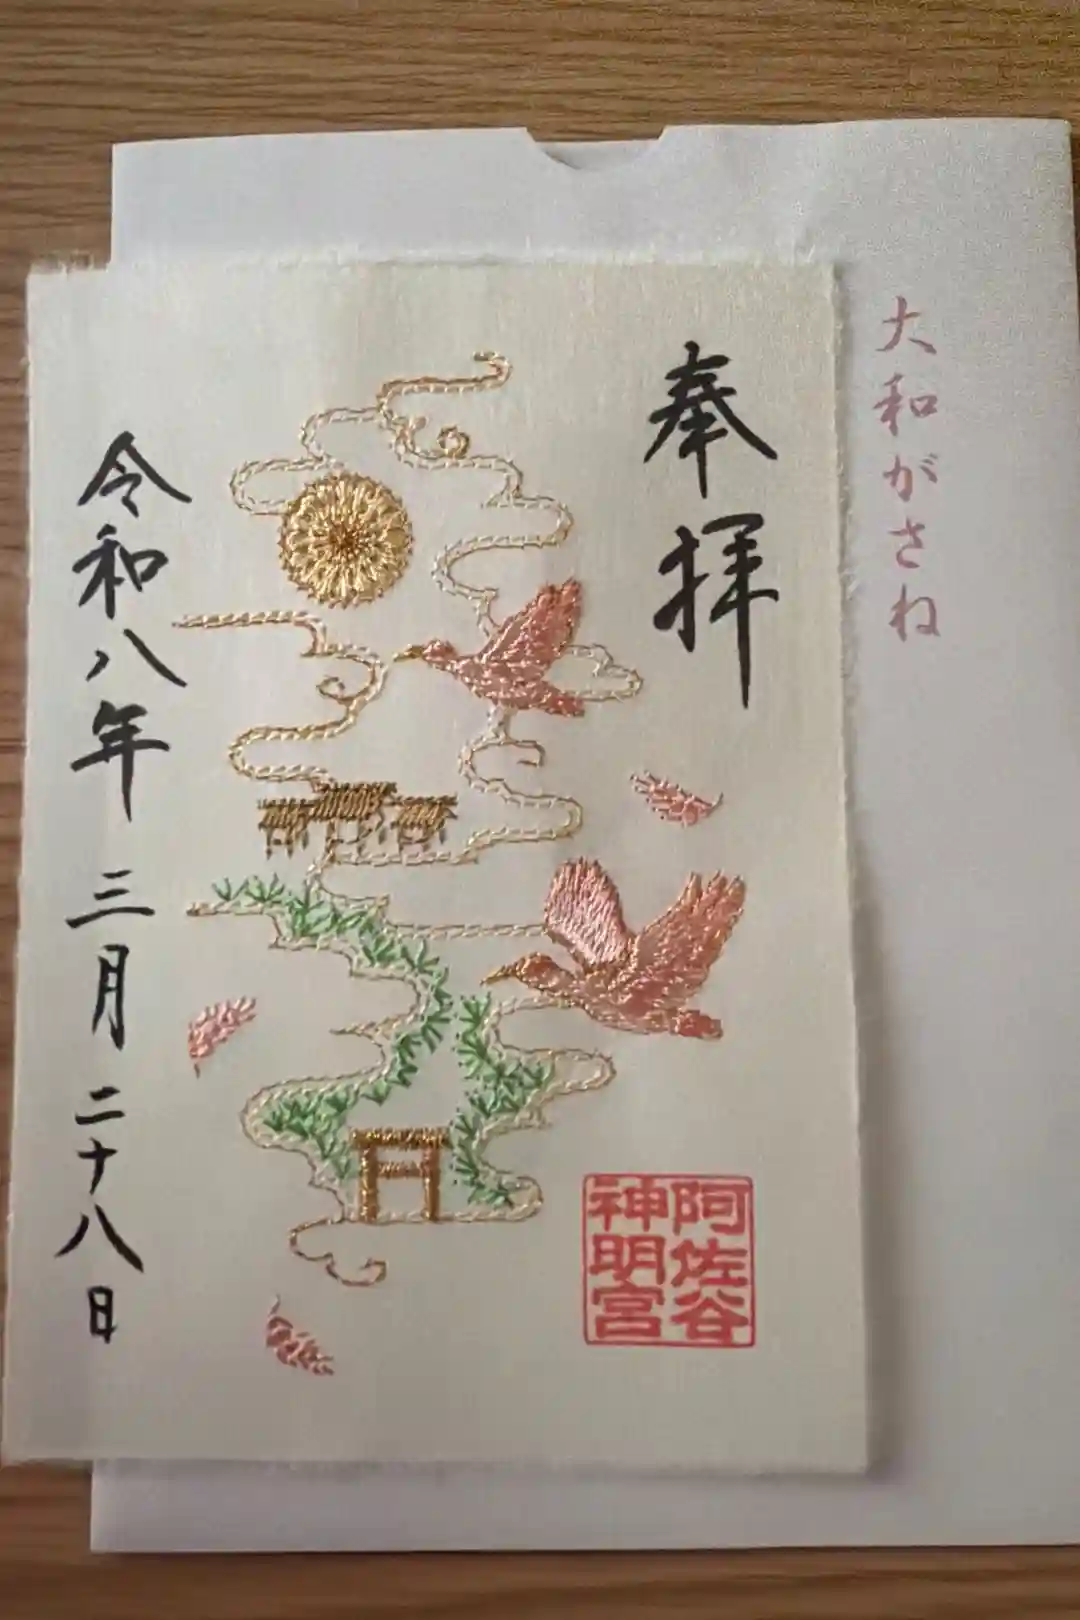 大和がさね
奉拝
阿佐谷
神明宮
令和八年 三月 二十八日